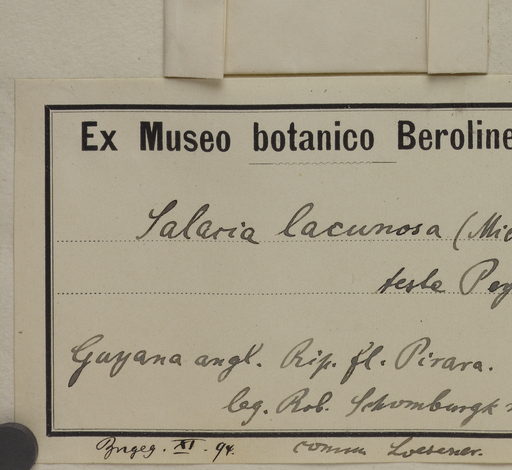 Ex Museo botanico Beroline
Salacia lacunosa (Mic
teste Pey
Guyana angl. Rip. fl. Pirara.
leg. Rob. Schomburgk
XI. 94. comm Loesener.